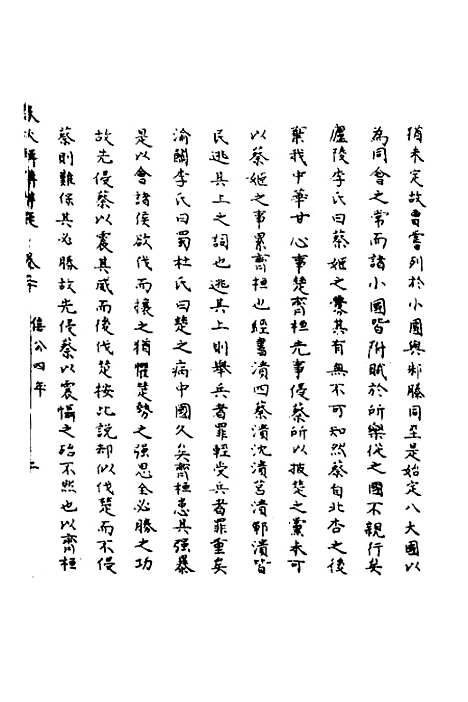 猶未定故曹嘗列於小國與邾滕同至是始定八大國以
為同會之常而諸小國皆附賦於所樂從之國不親行矣
廬陵李氏曰蔡姬之釁其有無不可知然蔡自北杏之後
棄我中華甘心事楚齊桓先事侵蔡所以披楚之黨未可
以蔡姬之事累齊桓也經書潰四蔡潰沈潰莒潰鄆潰皆
民逃其上之詞也逃其上則舉兵者罪輕受兵者罪重矣
渝關李氏曰蜀杜氏曰楚之病中國久矣齊桓患其強暴
是以會諸侯欲伐而攘之猶懼楚勢之強思全必勝之功
故先侵蔡以震其威而後伐楚按此說却似伐楚而不侵
蔡則難保其必勝故先侵蔡以震懾之殆不然也以齊桓
春秋輯傳辨疑 卷 僖公四年